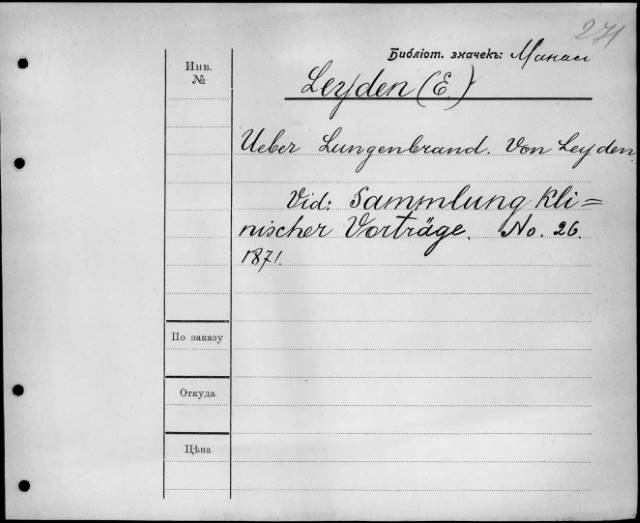 271
Библіот. значекъ: Манас
Инв.
№
Leyden (E.)
Ueber Lungenbrand. Von Leyden.
Vid: Sammlung kli=
nischer Vorträge. No. 26.
1871.
По заказу
Откуда
Цѣна